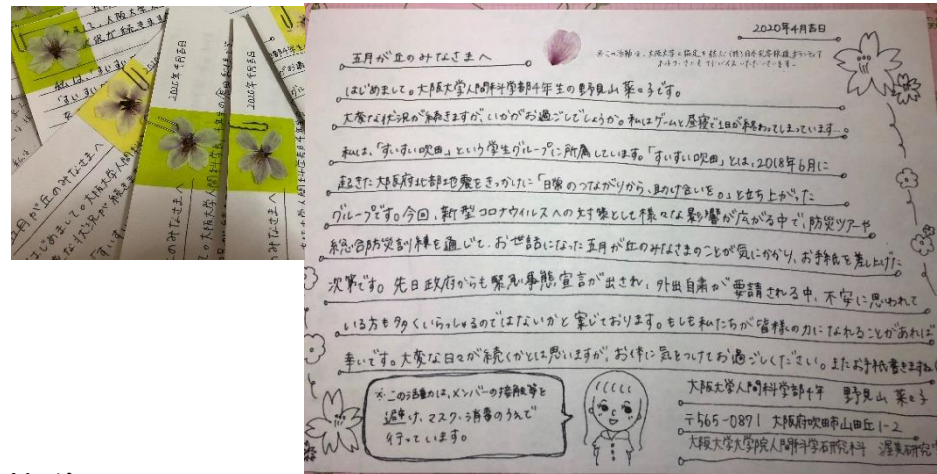 2020年4月吉日
五月が丘のみなさまへ
はじめまして。大阪大学人間科学部4年生の野見山菜々子です。
大変な状況が続きますが、いかがお過ごしでしょうか。私はゲームと昼寝で1日が終わってしまっています…。
私は、「すいすい吹田」という学生グループに所属しています。「すいすい吹田」とは、2018年6月に
起きた大阪府北部地震をきっかけに「日常のつながりから、助け合いを。」と立ち上がった
グループです。今回、新型コロナウイルスへの対策として様々な影響が広がる中で、防災ツアーや
総合防災訓練を通じて、お世話になった五月が丘のみなさまのことが気にかかり、お手紙を差し上げた
次第です。先日政府からも緊急事態宣言が出され、外出自粛が要請される中、不安に思われて
いる方も多くいらっしゃるのではないかと案じております。もしも私たちが皆様の力になれることがあれば
幸いです。大変な日々が続くかとは思いますが、お体に気をつけてお過ごしください。またお手紙書きますね
※この活動は、メンバーの接触等を
避け、マスク・消毒のうえで
行っています。
大阪大学人間科学部4年 野見山菜々子
〒565-0871 大阪府吹田市山田丘1-2
大阪大学大学院人間科学研究科 渥美研究
2020年4月吉日
2020年4月吉日
五月が丘のみなさまへ
はじめまして。大阪大学